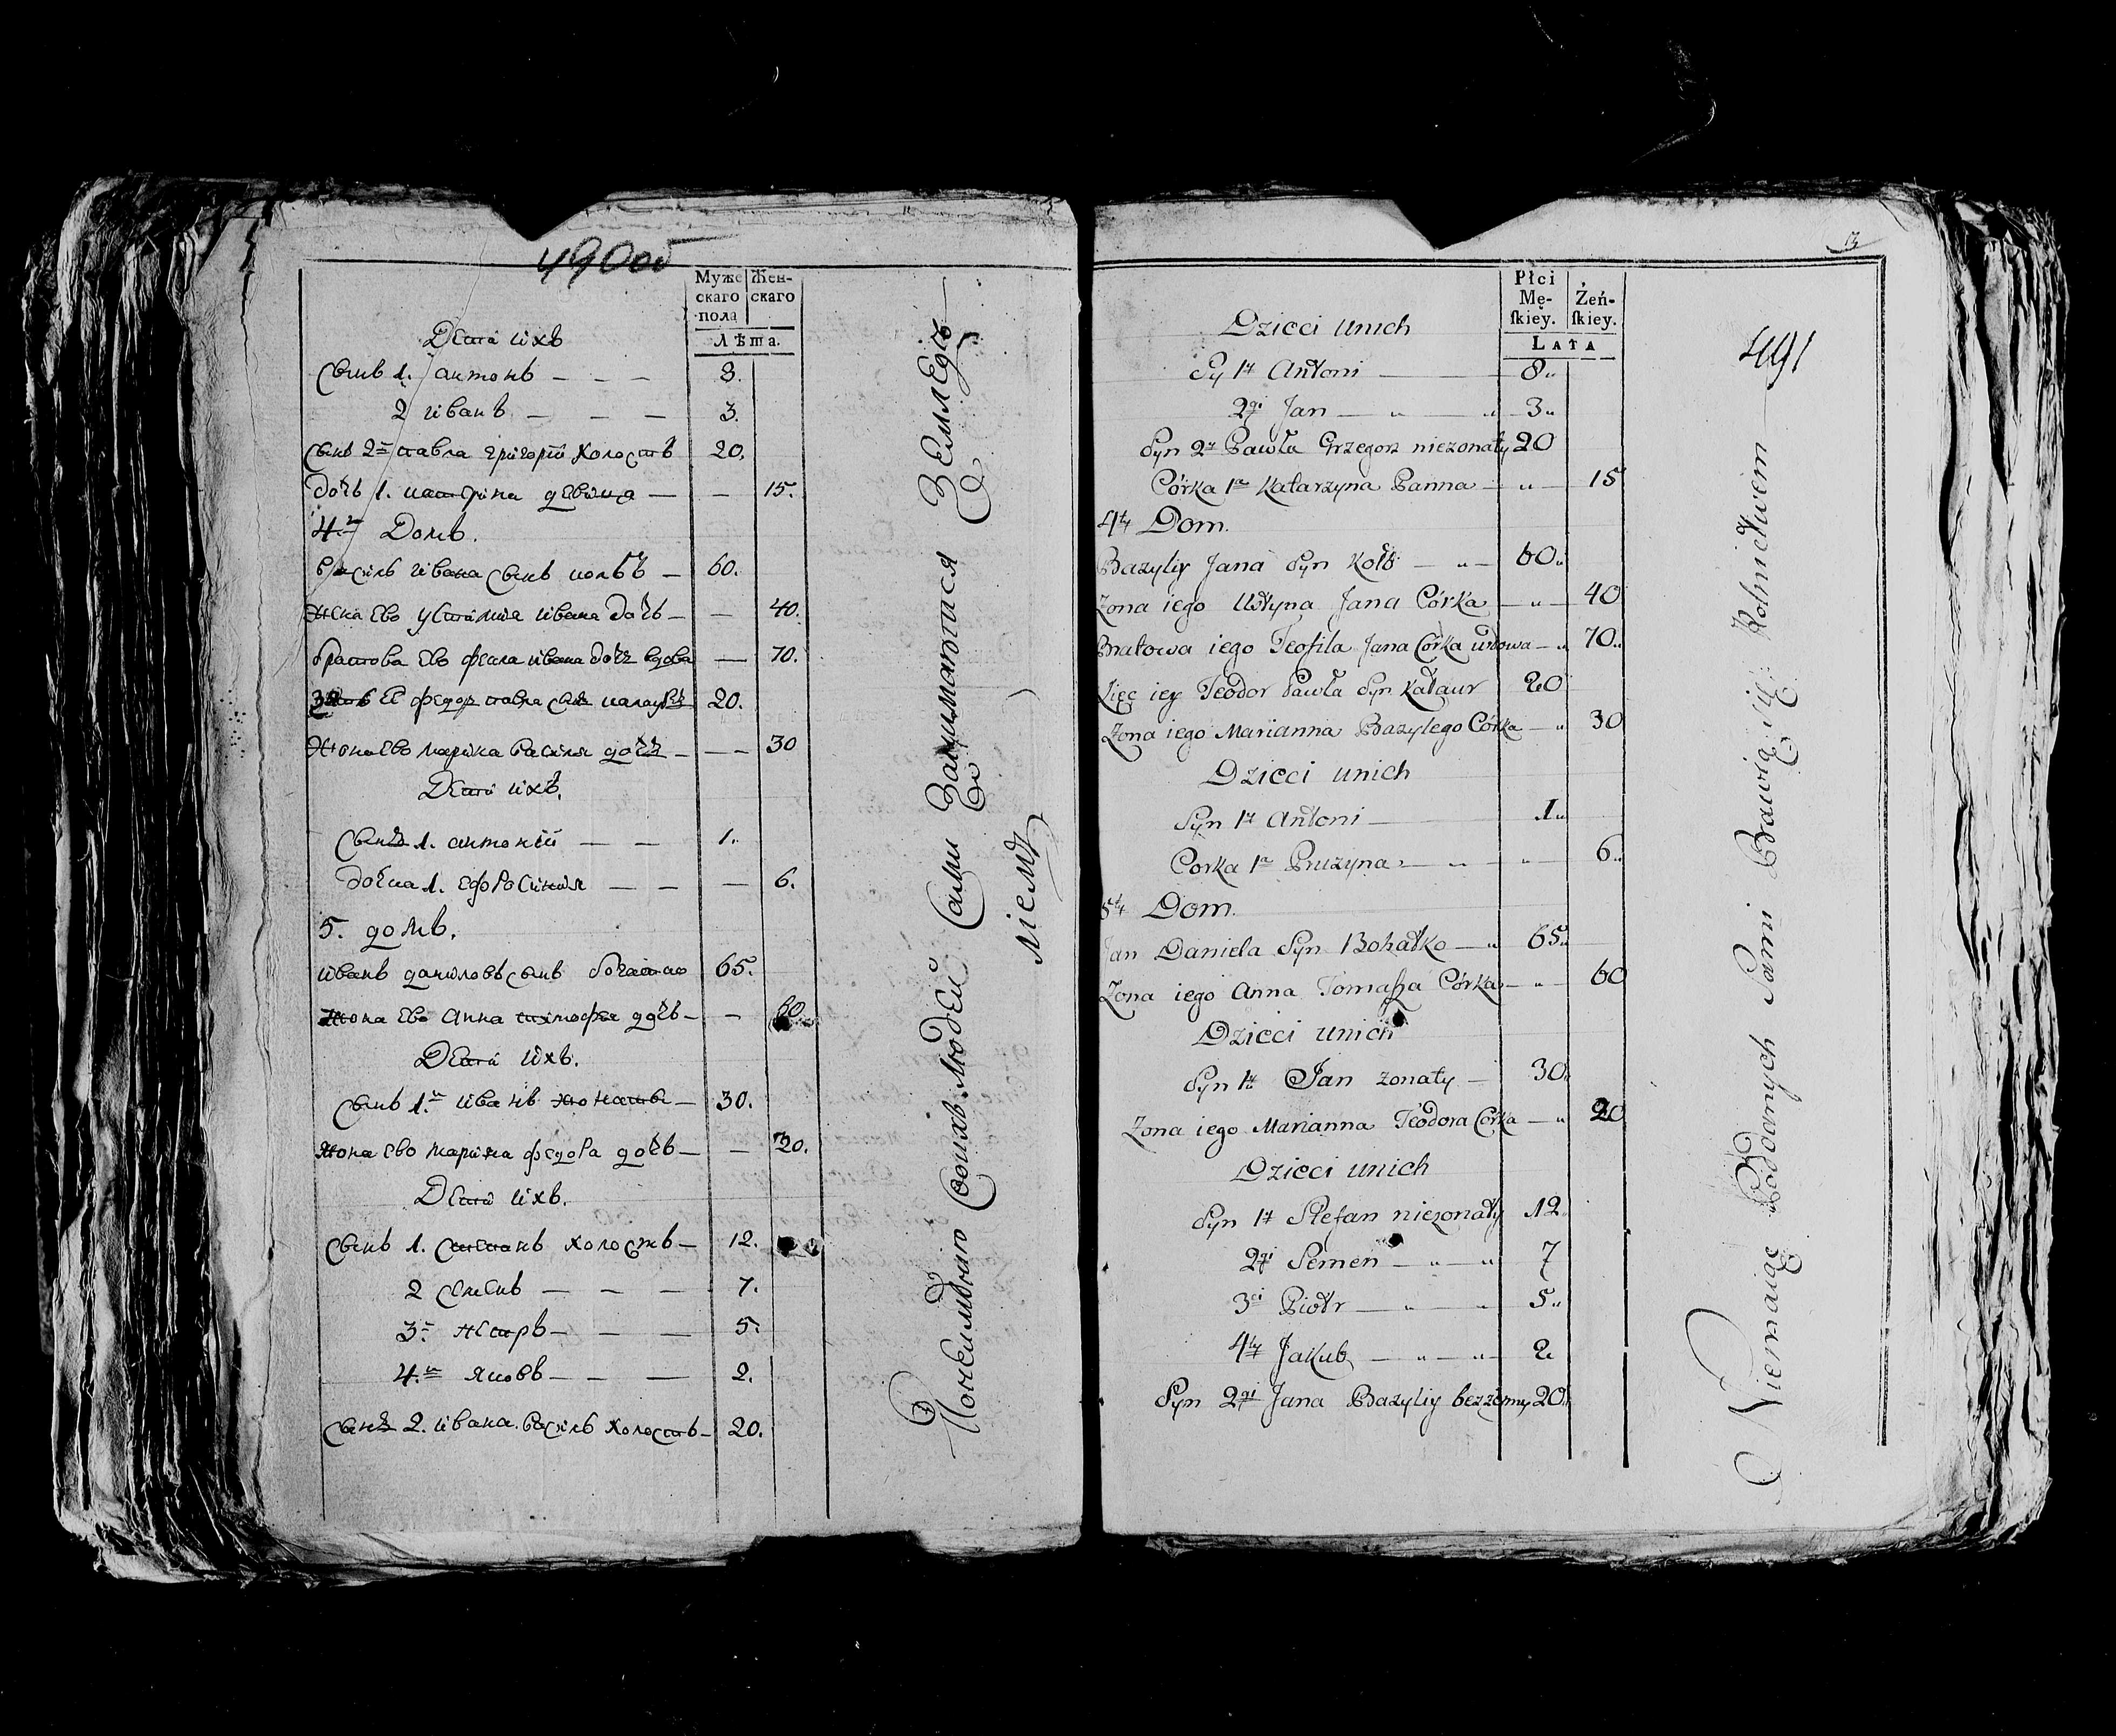 490 об
Муже
скаго
пола
Жен-
скаго
Лѣта.
Дети ихъ
Сынъ 1. антонъ — — — 8.
2 иванъ — — — 3.
Сынъ 2й павла григорій холостъ 20.
дочъ 1. катерина девица — — 15.
4й Домъ.
василь ивана сынъ колбъ — 60.
Жена ево устиния ивана дочъ — — 40.
братова ево фекла ивана дочъ вдова — 70.
Зять ее федор павла сынъ 20.
Жона ево марина василя дочъ — — 30
Дети ихъ.
Сынъ 1. антоній — — 1.
дочка 1. ефросиния — — — 6.
5. домъ.
иванъ даниловъ сынъ богатко 65.
Жона ево Анна тимофея дочъ — — 60.
Дети ихъ.
Сынъ 1й иванъ жонатъ — 30.
Жона ево марина федора дочъ — — 20.
Дети ихъ.
Сынъ 1. степанъ холостъ — 12.
2 семенъ — — — 7.
3й петръ — — — 5.
4й яковъ — — — 2.
Сынъ 2. ивана василь холостъ — 20.
Неимѣю Своихъ Людей Сами Занимаются Землед
ліемъ
491
Płci
Mę-
ſkiey.
Żeń-
ſkiey.
LATA
Dzieci unich
Sy 1y Antoni — 8
2gi Jan — " — " 3
Syn 2y Pawła Grzegorz niezonaty 20
Córka 1a Katarzyna Panna — " — 15
4ty Dom.
Bazyliy Jana Syn Kołb — " — 60
Zona iego Ustyna Jana Córka — " — 40
Bratowa iego Teofila Jana Córka wdowa — " 70
Zięc iey Teodor Pawła Syn Kałaur 20
Zona iego Marianna Bazylego Córka — " 30
Dzieci unich
Syn 1y Antoni — 1
Corka 1a Pruzyna — " — " — 6
5ty Dom.
Jan Daniela Syn Bohatko — " 65
Zona iego Anna Tomaſza Córka — " — 60
Dzieci unich
Syn 1y Jan zonaty — 30
Zona iego Marianna Teodora Córka — " 20
Dzieci unich
Syn 1y Stefan niezonaty 12
2gi Semen — " — " 7
3ci Piotr — " — " 5
4ty Jakub — " — " 2
Syn 2gi Jana Bazyliy bezzenny 20
Niemaiąc Poddanych Sami Bawią się Rolnictwem